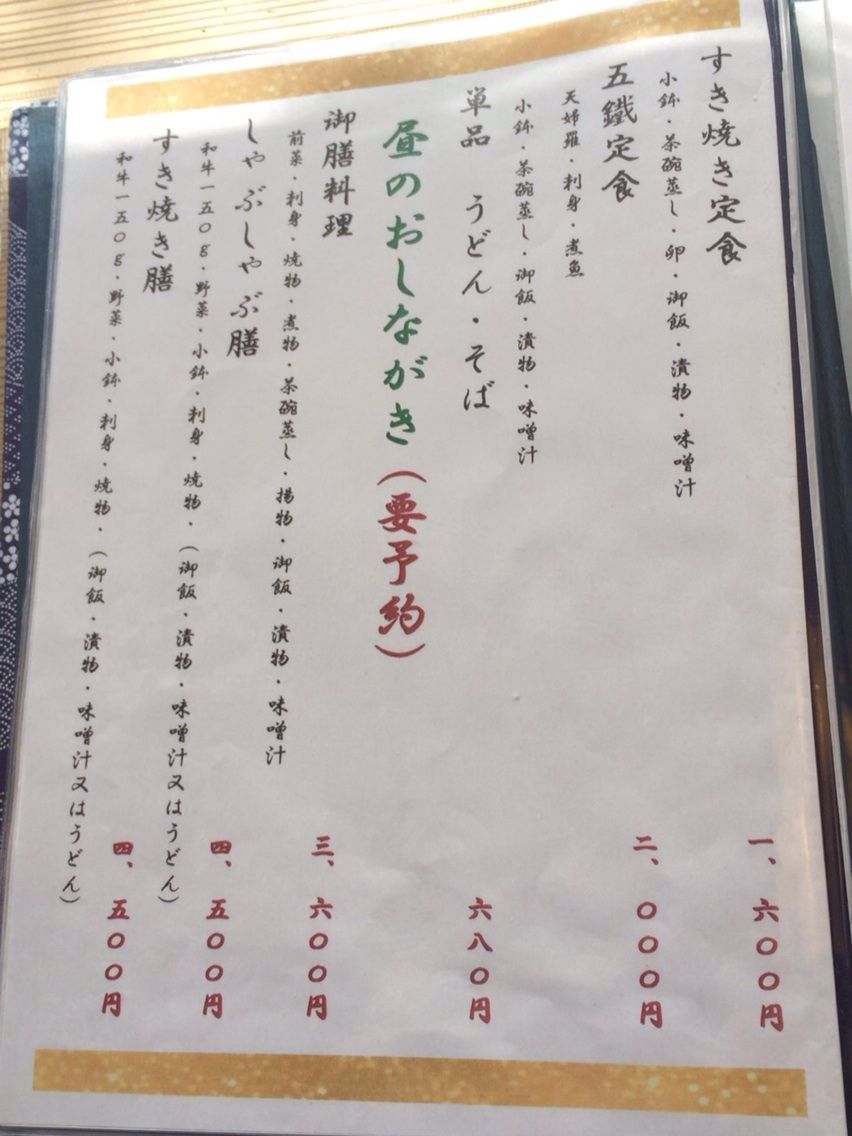 すき焼き定食 一、六〇〇円
小鉢・茶碗蒸し・卵・御飯・漬物・味噌汁
五鐵定食 二、〇〇〇円
天婦羅・刺身・煮魚
小鉢・茶碗蒸し・御飯・漬物・味噌汁
単品 うどん・そば 六八〇円
昼のおしながき（要予約）
御膳料理 三、六〇〇円
前菜・刺身・焼物・煮物・茶碗蒸し・揚物・御飯・漬物・味噌汁
しゃぶしゃぶ膳 四、五〇〇円
和牛一五〇ｇ・野菜・小鉢・刺身・焼物・（御飯・漬物・味噌汁又はうどん）
すき焼き膳 四、五〇〇円
和牛一五〇ｇ・野菜・小鉢・刺身・焼物・（御飯・漬物・味噌汁又はうどん）